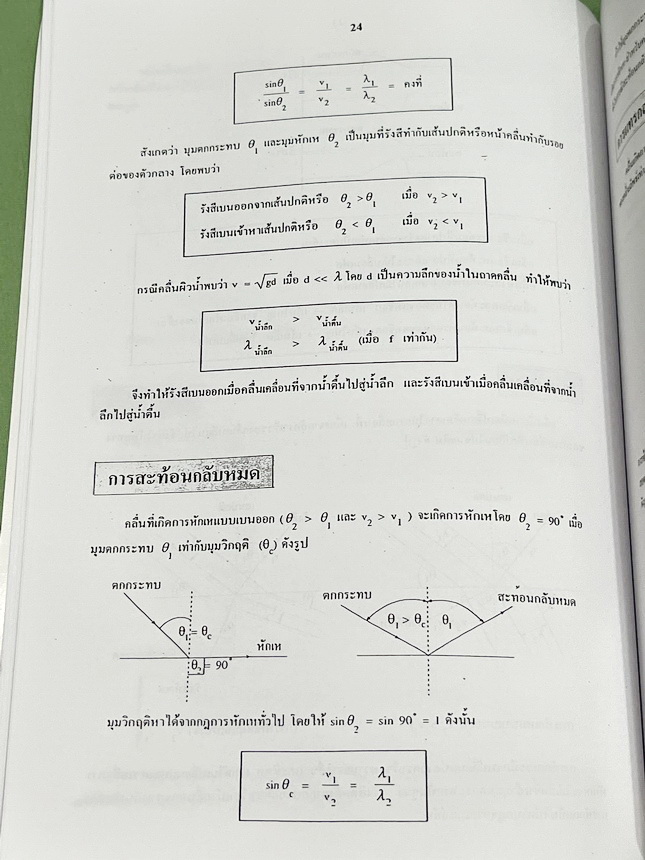 24
sinθ₁/sinθ₂ = v₁/v₂ = λ₁/λ₂ = คงที่
สังเกตว่า มุมตกกระทบ θ₁ และมุมหักเห θ₂ เป็นมุมที่รังสีทำกับเส้นปกติหรือหน้าคลื่นทำกับรอย
ต่อของตัวกลาง โดยพบว่า
รังสีเบนออกจากเส้นปกติหรือ θ₂ > θ₁ เมื่อ v₂ > v₁
รังสีเบนเข้าหาเส้นปกติหรือ θ₂ < θ₁ เมื่อ v₂ < v₁
กรณีคลื่นผิวน้ำพบว่า v = √gd เมื่อ d << λ โดย d เป็นความลึกของน้ำในถาดคลื่น ทำให้พบว่า
v น้ำลึก > v น้ำตื้น
λ น้ำลึก > λ น้ำตื้น (เมื่อ f เท่ากัน)
จึงทำให้รังสีเบนออกเมื่อคลื่นเคลื่อนที่จากน้ำตื้นไปสู่น้ำลึก และรังสีเบนเข้าเมื่อคลื่นเคลื่อนที่จากน้ำ
ลึกไปสู่น้ำตื้น
การสะท้อนกลับหมด
คลื่นที่เกิดการหักเหแบบเบนออก (θ₂ > θ₁ และ v₂ > v₁) จะเกิดการหักเหโดย θ₂ = 90° เมื่อ
มุมตกกระทบ θ₁ เท่ากับมุมวิกฤติ (θc) ดังรูป
ตกกระทบ
θ₁ = θc
หักเห
θ₂ = 90°
ตกกระทบ
สะท้อนกลับหมด
θ₁ > θc
θ₁
มุมวิกฤติหาได้จากกฎการหักเหทั่วไป โดยให้ sinθ₂ = sin 90° = 1 ดังนั้น
sinθc = v₁/v₂ = λ₁/λ₂